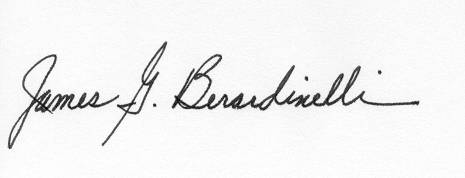 James G. Berardinelli